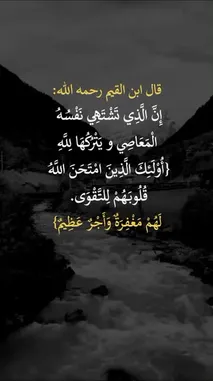 قال ابن القيم رحمه الله:
إِنَّ الَّذِي تَشْتَهِي نَفْسُهُ
الْمَعَاصِي و يَتْرُكُهَا لِلَّهِ
{أُوْلَئِكَ الَّذِينَ امْتَحَنَ اللَّهُ
قُلُوبَهُمْ لِلتَّقْوَى.
لَهُمْ مَغْفِرَةٌ وَأَجْرٌ عَظِيمٌ}